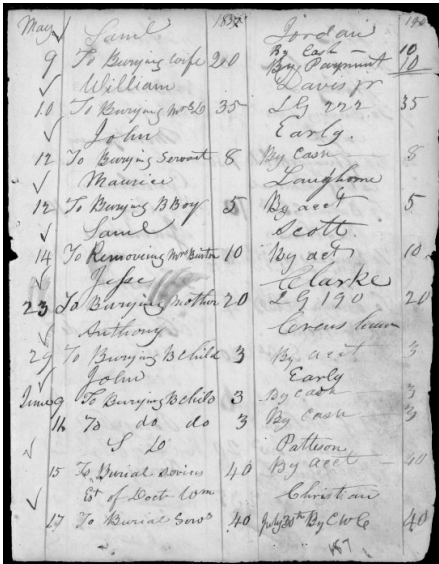 May Saml 1837 Jordan 190
By Cash — 10
9 To Burying wife 20 By Payment 10
William Davis jr
10 To Burying Mrs D 35 LG 222 35
John Early.
12 To Burying Servant 8 By Cash 8
Maurice Langhorne
12 To Burying B Boy 5 By acct 5
Saml Scott.
14 To Removing Mrs Burton 10 By act 10
Jesse Clarke
23 To Burying Mother 20 LG 190 20
Anthony
29 To Burying B child 3 By acct 3
John Early
June 9 To Burying B child 3 By Cash 3
16 To do do 3 By Cash 3
Patteson
15 To Burial 40 By acct — 40
Est of Doct Wm Christian
17 To Burial Servs 40 July 30th By C W C 40
187